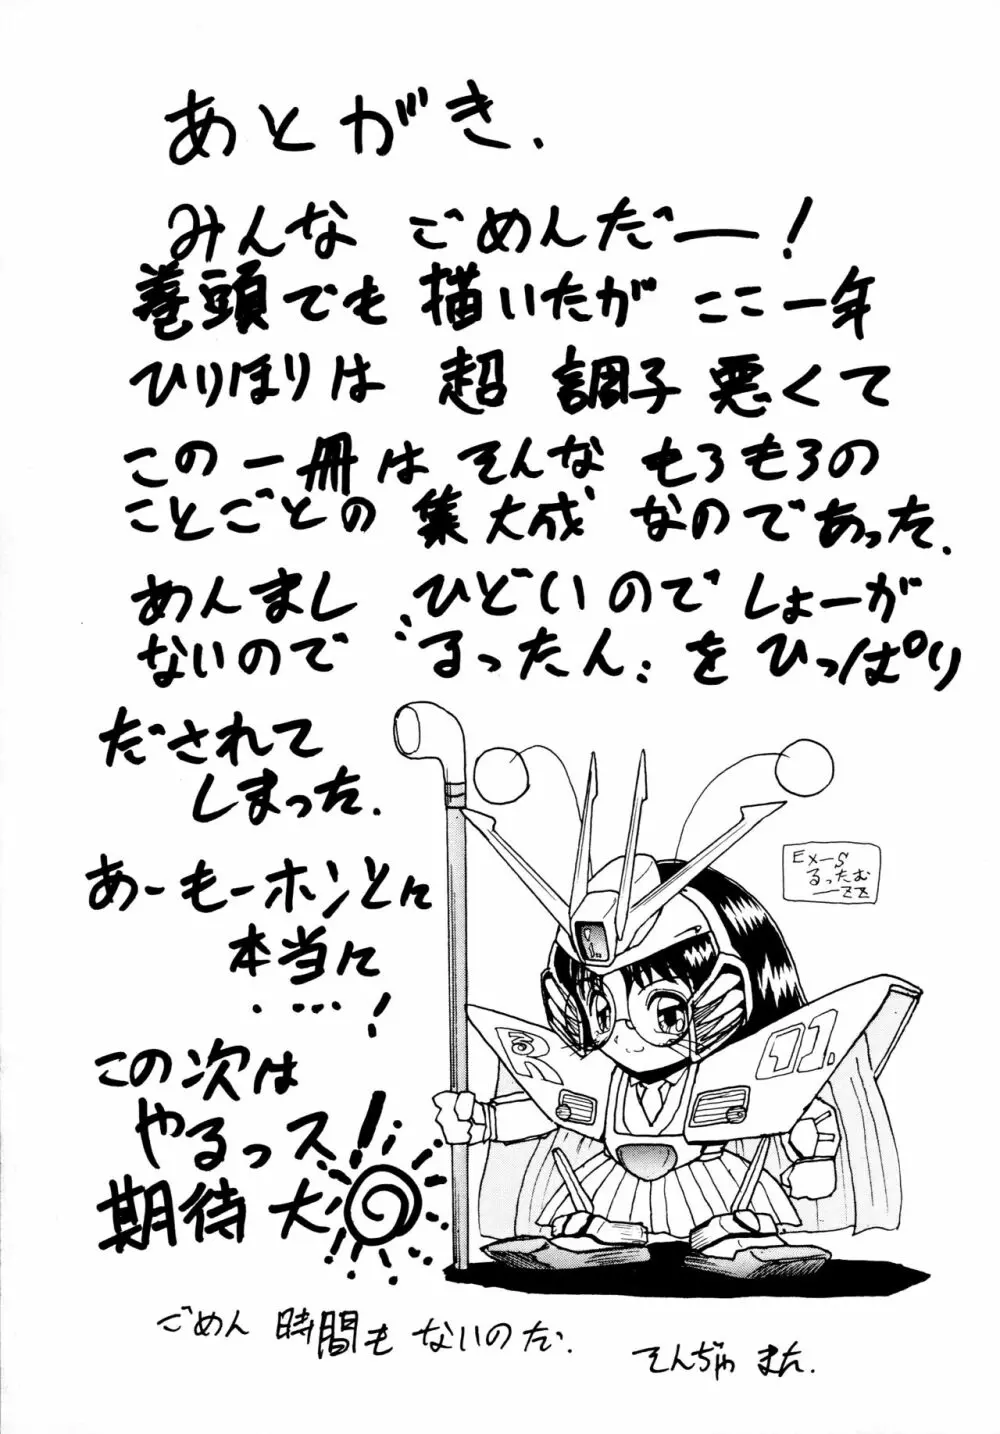 あとがき.
みんな ごめんだー!
巻頭でも 描いたが ここ一年
ひりほりは 超 調子悪くて
この一冊は そんな もろもろの
ことごとの 集大成 なのであった.
めんまし ひどいのでしょーが
ないので“るったん〟をひっぱり
だされて
しまった.
あーもーホントに
本当に
・・・・!
この次は
やるっス!
期待大
ごめん 時間も ないのだ.
そんぢゃ また.
EX-S
るったむ
ーZZ
R
01.